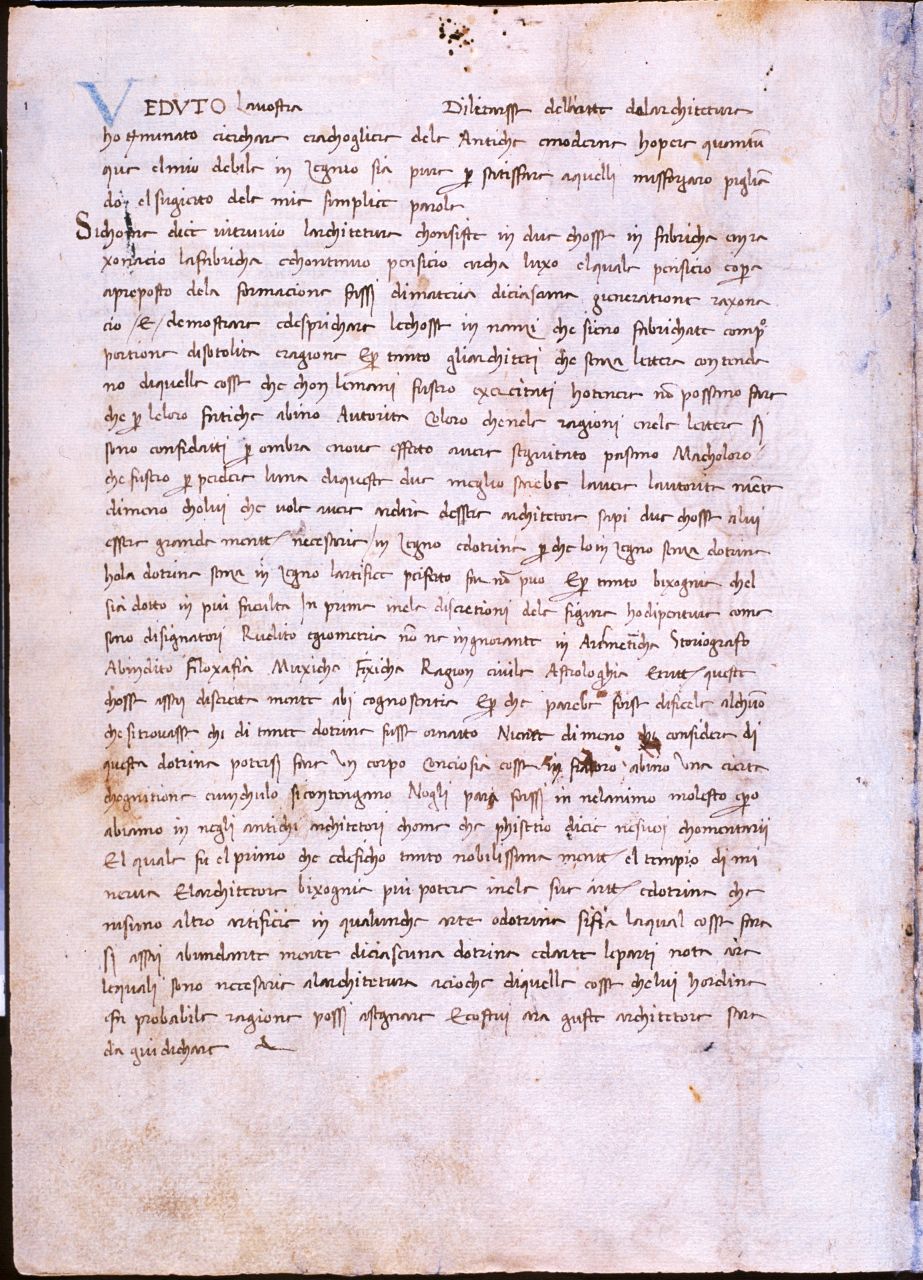 1
VEDVTO lavostra Dilectarsse del'arte delarchiteture
ho tminato cierchare erachogliere dele Antiche emoderne hopere quantū
que elmio debile in Zegnio sia pure p satisfare aquelli missforzaro pigliā
do el sugietto dele mie simplice parole
Sichome dice vitruvio larchitetura chonsiste in due chosse in fabricha enra
xonacio lafabricha echontinuo pensiero circha luxo elquale pensiero copa
apreposto dela formacione fussi dimateria diciasana gieneratione raxona
cio /E/ demostrare edesprichare lechosse in nanzi che sieno fabrichate compº
portione disotolita eragione Ep tanto gliarchiteti che senza lettere contende
no diquelle cosse che chon lemani fusero exercitati hotenere nō possano fare
che p leloro fatiche abino Autorita Coloro chenele ragioni enele lettere si
sono confidatti p ombra enove effetto avere seguitato pasano Macholoro
che fusero p perdere luna diqueste due meglio sarebe lavere lautorita niēte
dimeno cholui che vole avere ardire dessere architetore sapi due chosse alui
essere grande mente necesarie /in Zegno edotrina p che lo in Zegno senza dotrina
hola dotrina senza in Zegno lartifice perfetto far nō puo Ep tanto bixognia chel
sia dotto in piu faculta In prima inele discretioni dele figure hodipenture come
sano disignatori Rudito egiometria nō ne ingnorante in Arsmeticha Storiografo
Abindito Filoxafia Muxicha Fixicha Ragion civile Astrologhia Etutte queste
chosse assai discreta mente abi cognosentia Ep che parebe forse dificele alchuō
che sitrovasse chi di tante dotrine fusse ornatto Niente di meno chi considera di
questa dotrina potersi fare un corpo Conciosia cosse in fraloro abino una certa
chognitione eunchulo sicontengano Nogli para forssi in nelanimo molesto epo
abiamo in negli antichi architetori chome che phisetio dicie nesuoi chomentarii
El quale fu el primo che edeficho tanto nobilissima mente el tempio di mi
nerva Elarchitetore bixognia piu potere inele sue arte edotrine che
nisuno altro artificie in qualunche arte odotrina sisia laqual cosse fara
si assai abundante mente diciascuna dotrina edarte leparti note are
lequali sono necesarie alarchitetura acioche diquelle cosse chelui hordina
efa probabile ragione possi asegnare Ecostui ara guste architetore fare
da guidichare